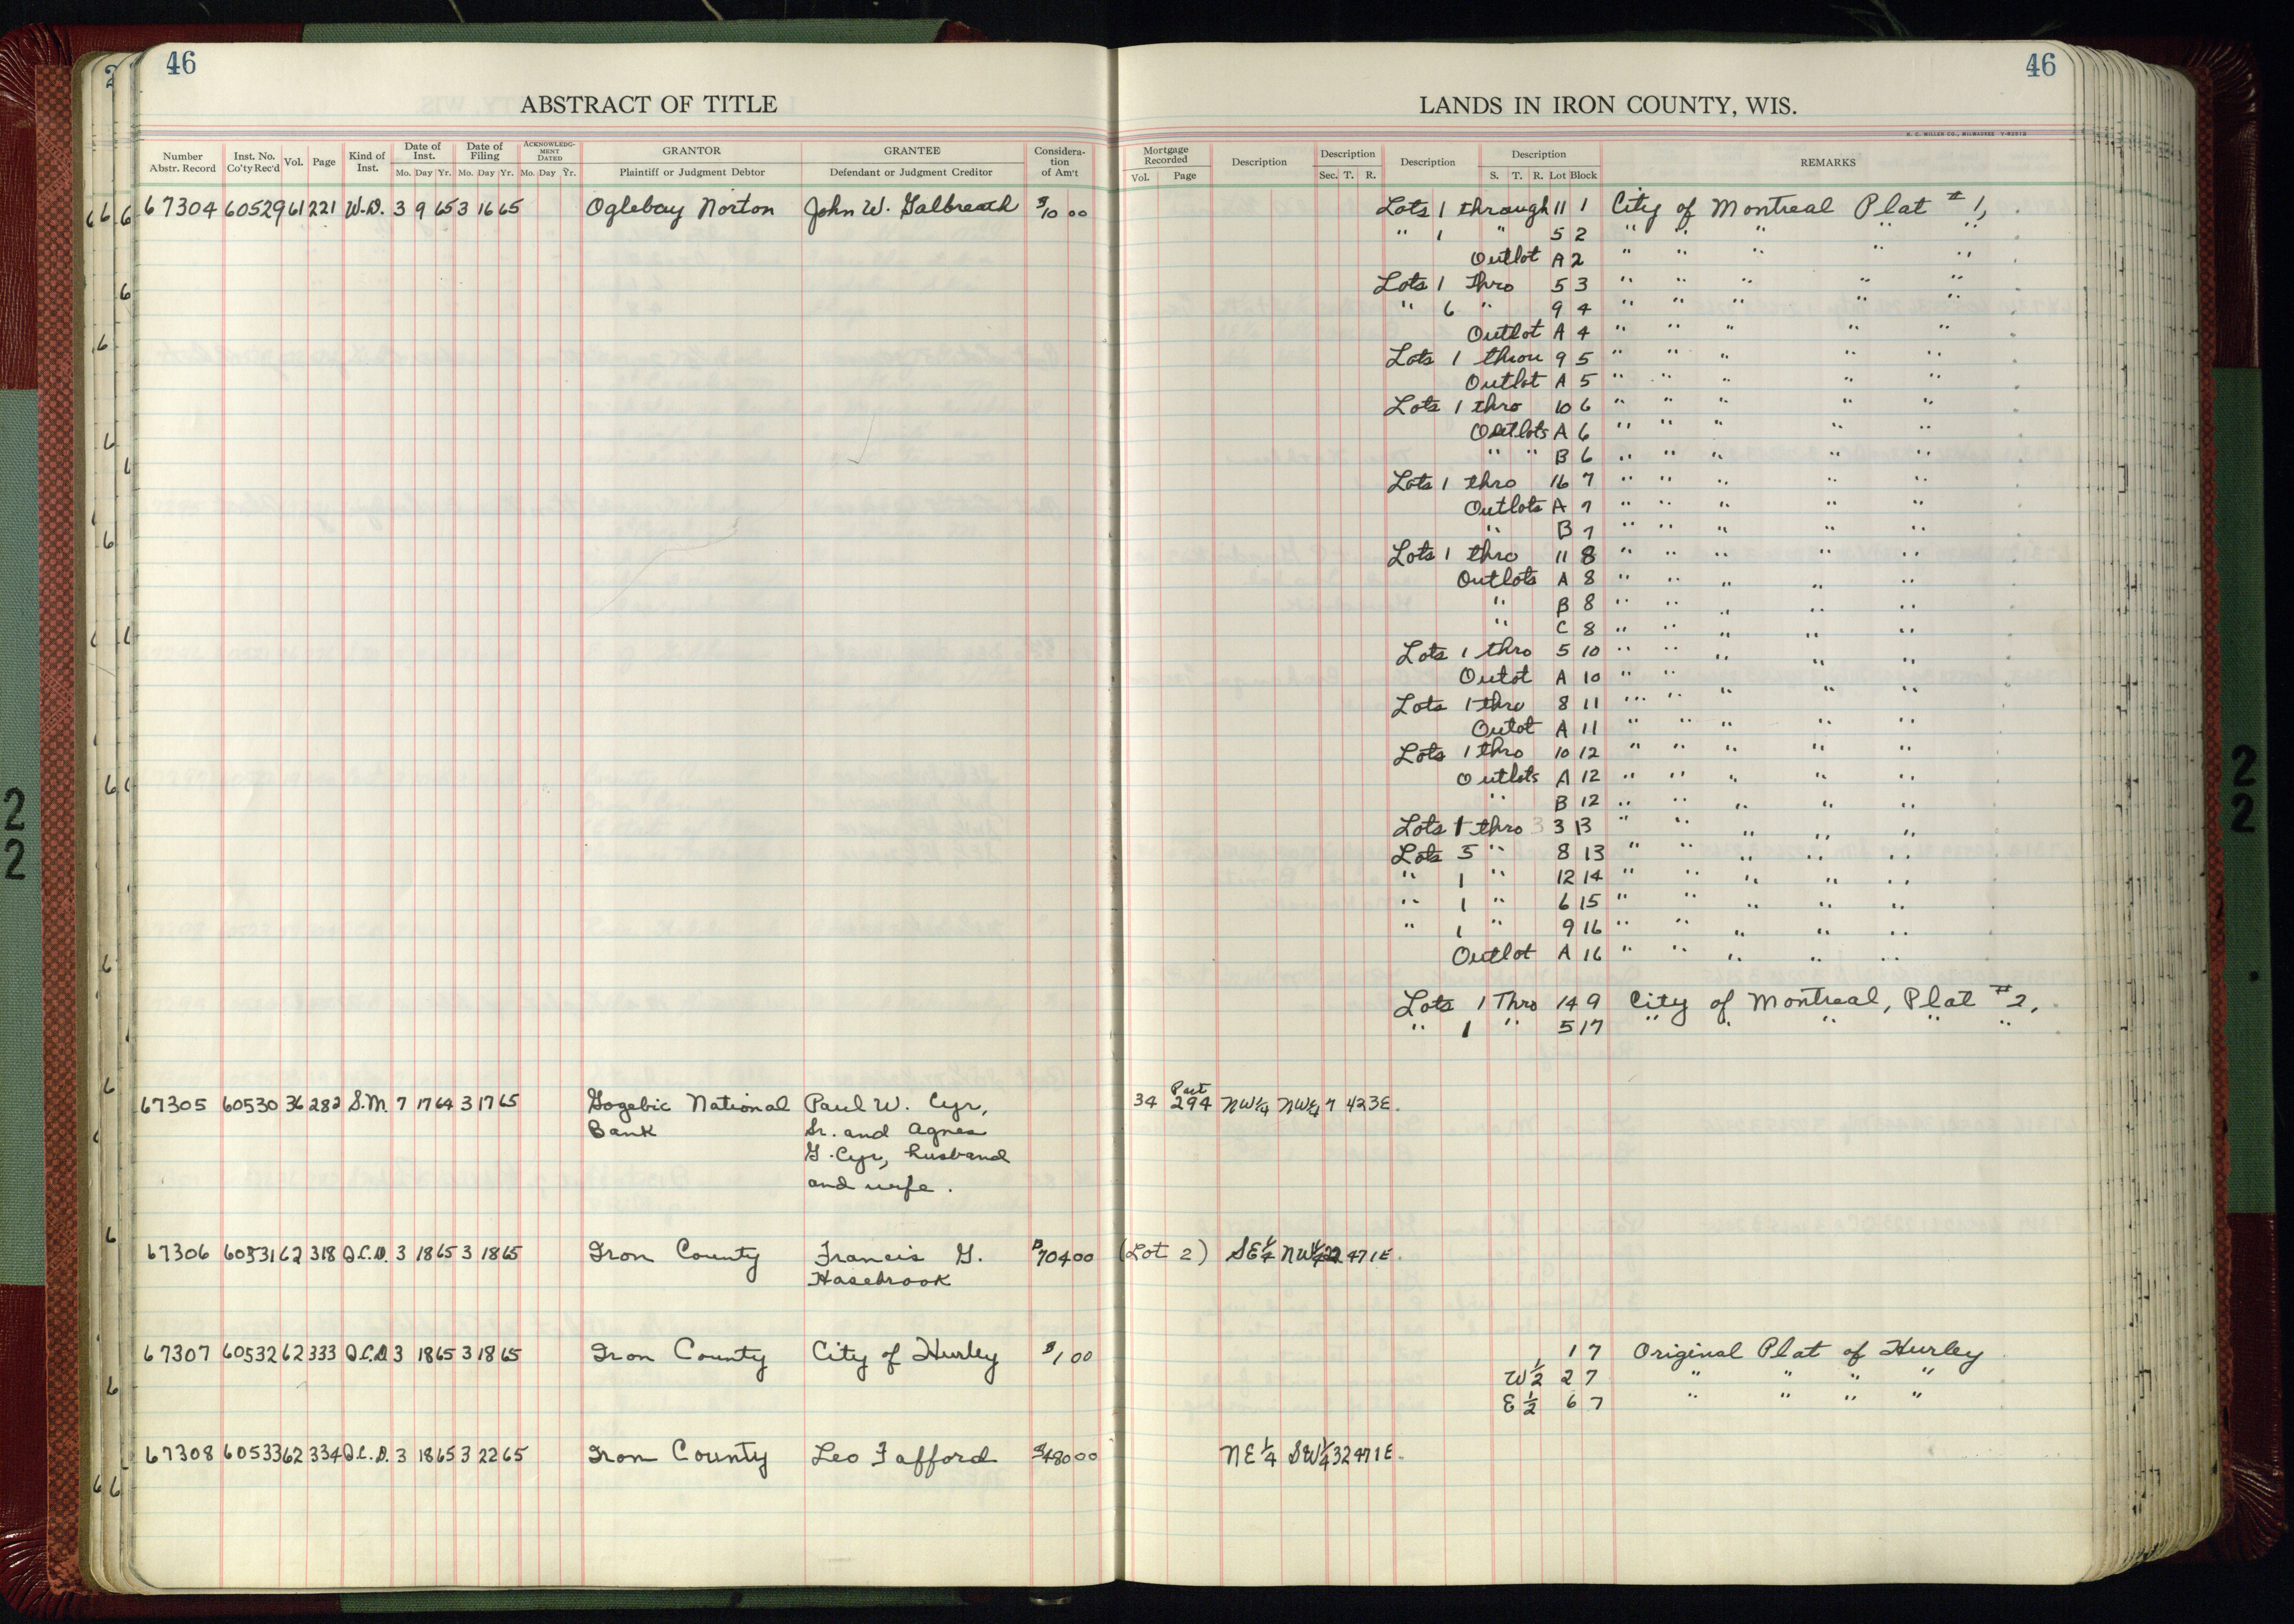 46
46
ABSTRACT OF TITLE
LANDS IN IRON COUNTY, WIS.
H. C. MILLER CO., MILWAUKEE
Number Abstr. Record Inst. No. Co'ty Rec'd Vol. Page Kind of Inst. Date of Inst. Mo. Day Yr. Date of Filing Mo. Day Yr. ACKNOWLEDGMENT DATED Mo. Day Yr. GRANTOR Plaintiff or Judgment Debtor GRANTEE Defendant or Judgment Creditor Consideration of Am't
Mortgage Recorded Vol. Page Description Description Sec. T. R. Description Description S. T. R. Lot Block REMARKS
67304 60529 61 221 W.D. 3 9 65 3 16 65 Oglebay Norton John W. Galbreath $10 00 Lots 1 through 11 1 City of Montreal Plat #1,
" 1 " 5 2 " " " " "
Outlot A 2 " " " " "
Lots 1 Thro 5 3 " " " " "
" 6 " 9 4 " " " " "
Outlot A 4 " " " " "
Lots 1 throu 9 5 " " " " "
Outlot A 5 " " " " "
Lots 1 thro 10 6 " " " " "
Outlots A 6 " " " " "
" " B 6 " " " " "
Lots 1 thro 16 7 " " " " "
Outlots A 7 " " " " "
" B 7 " " " " "
Lots 1 thro 11 8 " " " " "
Outlots A 8 " " " " "
" B 8 " " " " "
" C 8 " " " " "
Lots 1 thro 5 10 " " " " "
Outot A 10 " " " " "
Lots 1 thro 8 11 " " " " "
Outot A 11 " " " " "
Lots 1 thro 10 12 " " " " "
Outlots A 12 " " " " "
" B 12 " " " " "
Lots 1 thro 3 13 " " " " "
Lots 5 " 8 13 " " " " "
" 1 " 12 14 " " " " "
" 1 " 6 15 " " " " "
" 1 " 9 16 " " " " "
Outlot A 16 " " " " "
Lots 1 Thro 14 9 City of Montreal, Plat #2,
" 1 " 5 17 " " " " "
67305 60530 36 282 S.M. 7 17 64 3 17 65 Gogebic National Paul W. Cyr, 34 Part 294 NW¼ NW¼ 7 42 3E.
Bank Sr. and Agnes
G. Cyr, husband
and wife.
67306 60531 62 318 Q.C.D. 3 18 65 3 18 65 Iron County Francis G. $704 00 (Lot 2) SE¼ NW¼ 22 47 1E.
Hasebrook
67307 60532 62 333 Q.C.D. 3 18 65 3 18 65 Iron County City of Hurley $1 00 1 7 Original Plat of Hurley
W½ 2 7 " " " "
E½ 6 7 " " " "
67308 60533 62 334 Q.C.D. 3 18 65 3 22 65 Iron County Leo Fafford $480 00 NE¼ SW¼ 32 47 1E.
22
22